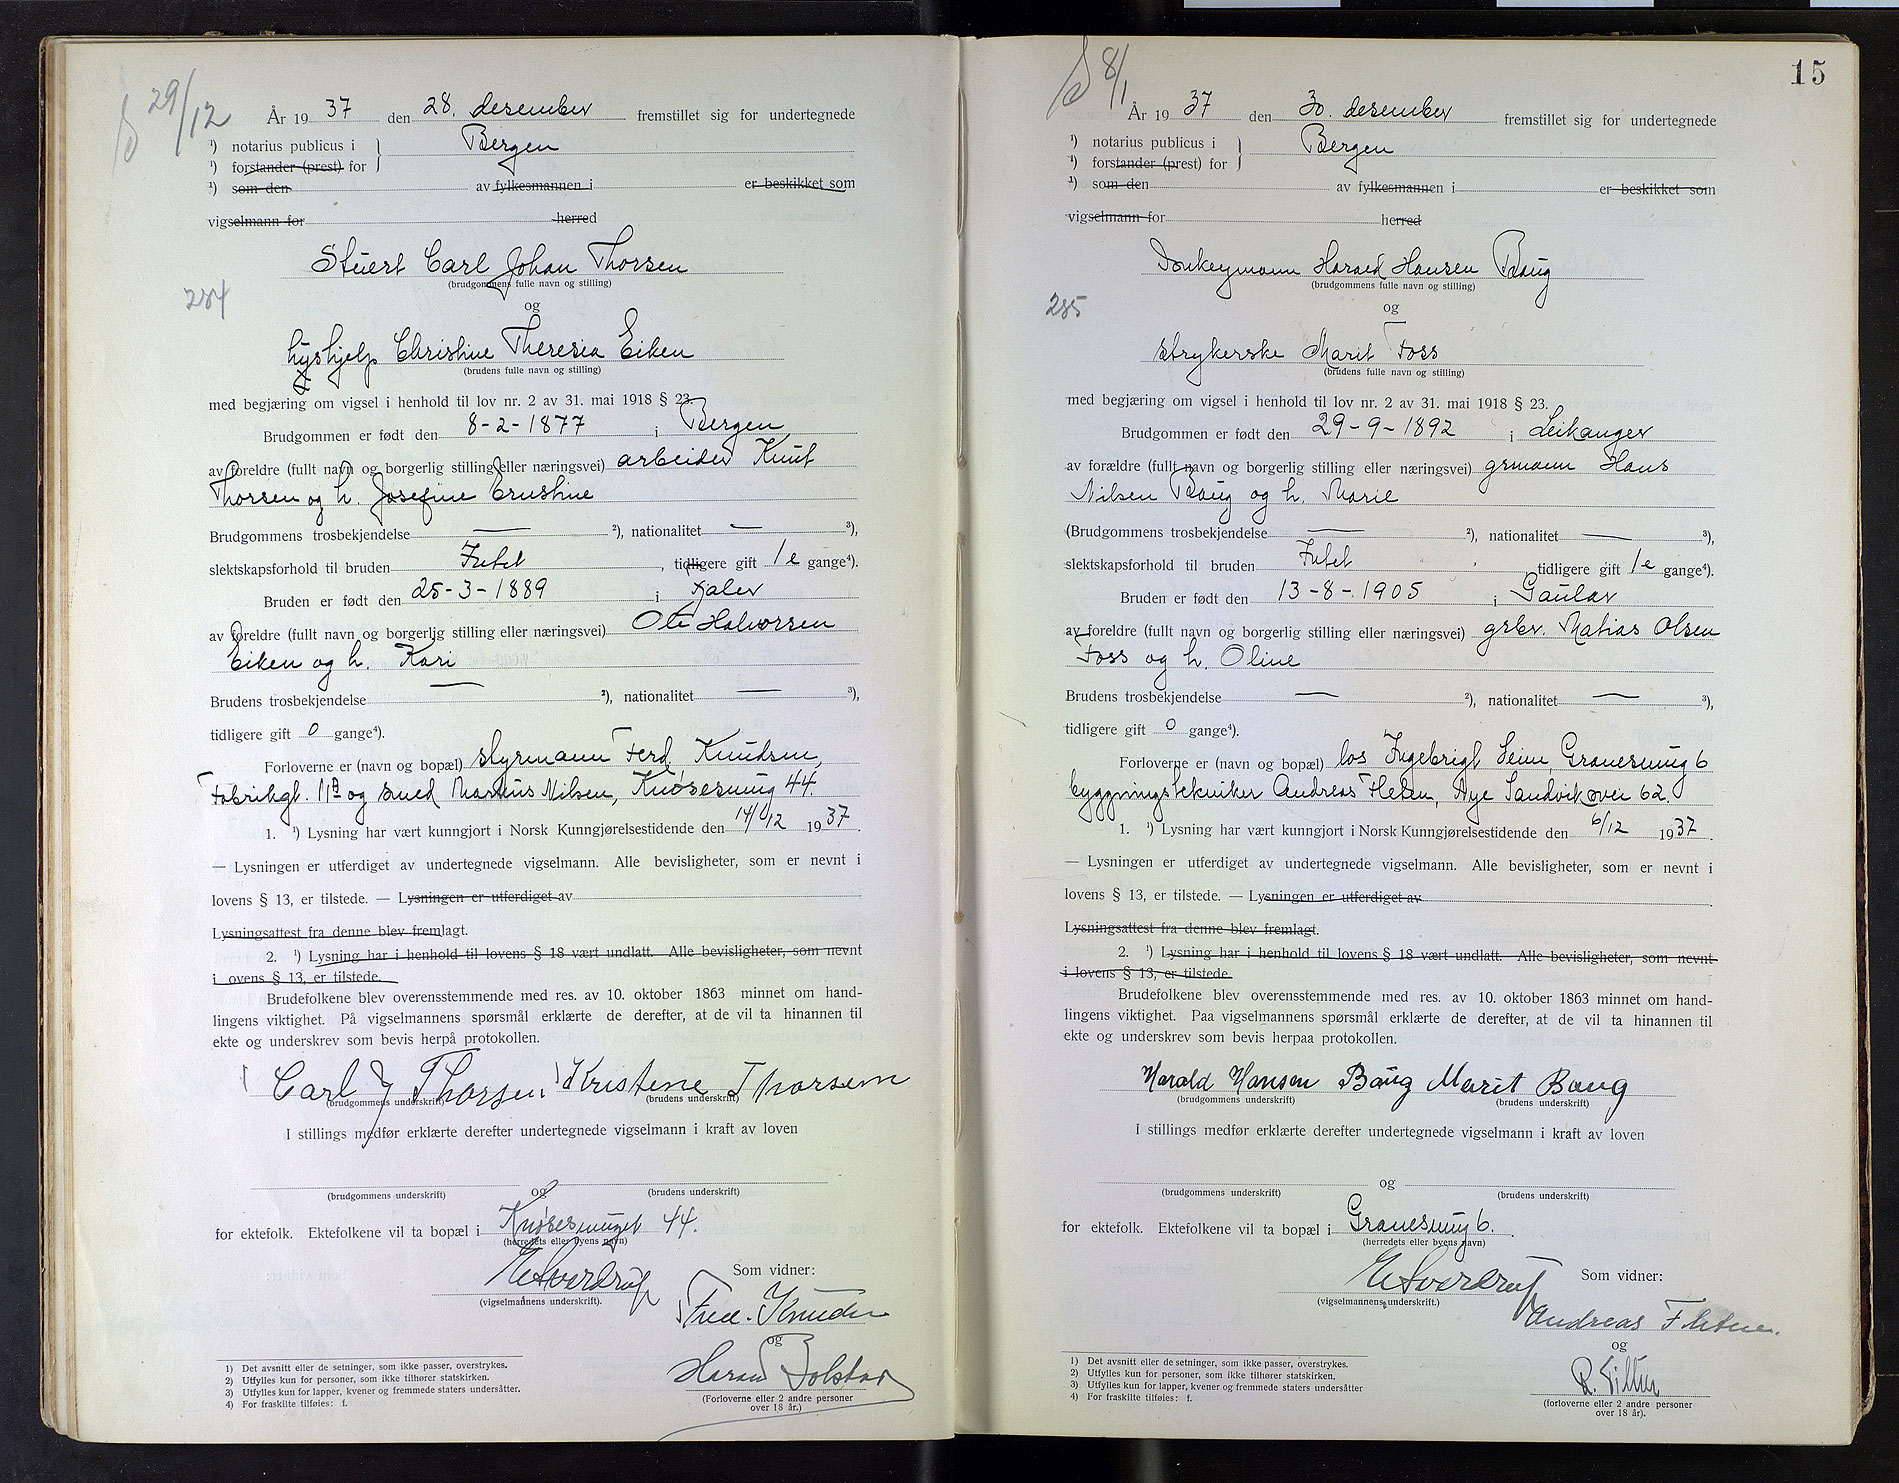 29/12
År 1937 den 28. desember fremstillet sig for undertegnede
¹) notarius publicus i } Bergen
¹) forstander (prest) for
¹) som den av fylkesmannen i er beskikket som
vigselmann for herred
Stuert Carl Johan Thorsen
(brudgommens fulle navn og stilling)
284
og
hushjelp Christine Theresia Eiken
(brudens fulle navn og stilling)
med begjæring om vigsel i henhold til lov nr. 2 av 31. mai 1918 § 23.
Brudgommen er født den 8-2-1877 i Bergen
av foreldre (fullt navn og borgerlig stilling eller næringsvei) arbeider Knut
Thorsen og h. Josefine Ernstine
Brudgommens trosbekjendelse — ²), nationalitet — ³),
slektskapsforhold til bruden Intet, tidligere gift 1 e gange⁴).
Bruden er født den 25-3-1889 i Fjaler
av foreldre (fullt navn og borgerlig stilling eller næringsvei) Ole Halvorsen
Eiken og h. Kari
Brudens trosbekjendelse — ²), nationalitet — ³),
tidligere gift 0 gange⁴).
Forloverne er (navn og bopæl) styrmann Ferd. Knudsen,
Fabrikgt. 11 B og smed Marius Nilsen, Knøsesmug 44.
1. ¹) Lysning har vært kunngjort i Norsk Kunngjørelsestidende den 14/12 1937.
— Lysningen er utferdiget av undertegnede vigselmann. Alle bevisligheter, som er nevnt i
lovens § 13, er tilstede. — Lysningen er utferdiget av
Lysningsattest fra denne blev fremlagt.
2. ¹) Lysning har i henhold til lovens § 18 vært undlatt. Alle bevisligheter, som nevnt
i ovens § 13, er tilstede.
Brudefolkene blev overensstemmende med res. av 10. oktober 1863 minnet om hand-
lingens viktighet. På vigselmannens spørsmål erklærte de derefter, at de vil ta hinannen til
ekte og underskrev som bevis herpå protokollen.
Carl J Thorsen Kristene Thorsen
(brudgommens underskrift) (brudens underskrift)
I stillings medfør erklærte derefter undertegnede vigselmann i kraft av loven
og
(brudgommens underskrift) (brudens underskrift)
for ektefolk. Ektefolkene vil ta bopæl i Knøsesmuget 44.
(herredets eller byens navn)
E Sverdrup
(vigselmannens underskrift).
Som vidner:
Fred. Knudsen
og
Harald Bolstad
(Forloverne eller 2 andre personer
over 18 år.)
1) Det avsnitt eller de setninger, som ikke passer, overstrykes.
2) Utfylles kun for personer, som ikke tilhører statskirken.
3) Utfylles kun for lapper, kvener og fremmede staters undersåtter.
4) For fraskilte tilføies: f.
15
8/1
År 1937 den 30. desember fremstillet sig for undertegnede
¹) notarius publicus i } Bergen
¹) forstander (prest) for
¹) som den av fylkesmannen i er beskikket som
vigselmann for herred
Donkeymann Harald Hansen Baug
(brudgommens fulle navn og stilling)
285
og
strykerske Marit Foss
(brudens fulle navn og stilling)
med begjæring om vigsel i henhold til lov nr. 2 av 31. mai 1918 § 23.
Brudgommen er født den 29-9-1892 i Leikanger
av forældre (fullt navn og borgerlig stilling eller næringsvei) grmann Hans
Nilsen Baug og h. Marie
(Brudgommens trosbekjendelse — ²), nationalitet — ³),
slektskapsforhold til bruden Intet, tidligere gift 1 e gange⁴).
Bruden er født den 13-8-1905 i Gaular
av foreldre (fullt navn og borgerlig stilling eller næringsvei) grbr. Matias Olsen
Foss og h. Oline
Brudens trosbekjendelse — ²), nationalitet — ³),
tidligere gift 0 gange⁴).
Forloverne er (navn og bopæl) los Ingebrigt Seim Granesmug 6
byggningstekniker Andreas Fleten, Nye Sandviksvei 62.
1. ¹) Lysning har vært kunngjort i Norsk Kunngjørelsestidende den 6/12 1937.
— Lysningen er utferdiget av undertegnede vigselmann. Alle bevisligheter, som er nevnt i
lovens § 13, er tilstede. — Lysningen er utferdiget av
Lysningsattest fra denne blev fremlagt.
2. ¹) Lysning har i henhold til lovens § 18 vært undlatt. Alle bevisligheter, som nevnt
i lovens § 13, er tilstede.
Brudefolkene blev overensstemmende med res. av 10. oktober 1863 minnet om hand-
lingens viktighet. Paa vigselmannens spørsmål erklærte de derefter, at de vil ta hinannen til
ekte og underskrev som bevis herpaa protokollen.
Harald Hansen Baug Marit Baug
(brudgommens underskrift) (brudens underskrift)
I stillings medfør erklærte derefter undertegnede vigselmann i kraft av loven
og
(brudgommens underskrift) (brudens underskrift)
for ektefolk. Ektefolkene vil ta bopæl i Granesmug 6.
(herredets eller byens navn)
E Sverdrup
(vigselmannens underskrift.)
Som vidner:
Andreas Fletene.
og
(forloverne eller 2 andre personer
over 18 år).
1) Det avsnitt eller de setninger, som ikke passer, overstrykes.
2) Utfylles kun for personer, som ikke tilhører statskirken.
3) Utfylles kun for lapper, kvener og fremmede staters undersåtter
4) For fraskilte tilføies: f.